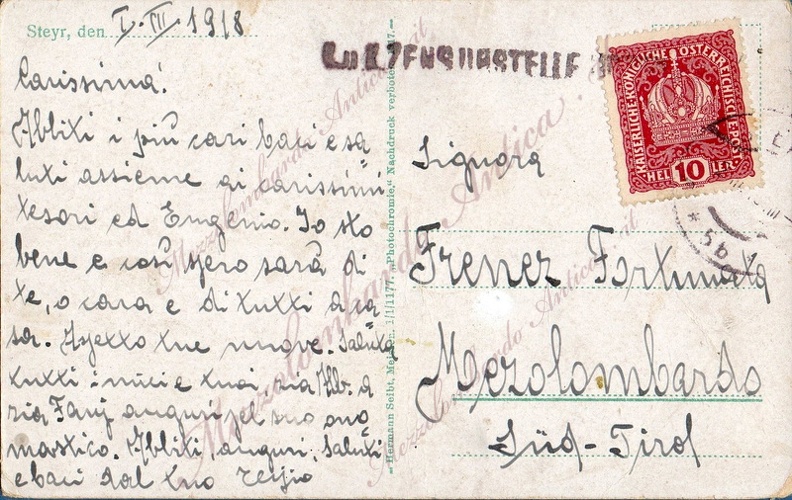 Steyr, den I. III. 1918
Carissima!
Abbiti i più cari baci e sa
luti assieme ai carissimi
tesori ed Eugenio. Io sto
bene e così spero sarà di
te, o cara e di tutti a ca
sa. Aspetto tue nuove. Saluta
tutti i miei e tuoi, zia Alb. a
zia Fany auguri pel suo ono
mastico. Abbiti, auguri, saluti
e baci dal tuo
Hermann Seibt, Meißen. 1/1/1177. „Photochromie." Nachdruck verboten. 17.
KAISERLICHE KÖNIGLICHE ÖSTERREICHISCHE POST
HEL 10 LER
* 5b
Signora
Frener Fortunata
Mezolombardo
Süd-Tirol
Mezzolombardo Antica.it
Mezzolombardo Antica.it
Mezzolombardo Antica.it